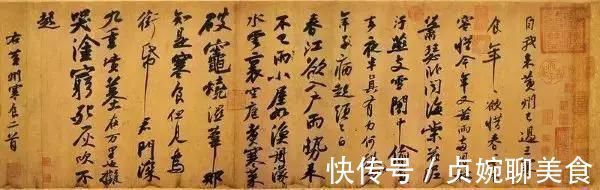 自我來黃州已過三寒
食年年欲惜春春去不
容惜今年又苦雨兩月秋
蕭瑟臥聞海棠花泥
汙燕支雪闇中偷負
去夜半真有力何殊
年子病起頭已白
春江欲入戶雨勢來
不已雨小屋如漁舟濛濛
水雲裏空庖煮寒菜
破竈燒濕葦那
知是寒食但見烏
銜帋君門深
九重墳墓在万里也擬
哭塗窮死灰吹不
起
右黃州寒食二首
快传号/贞婉聊美食